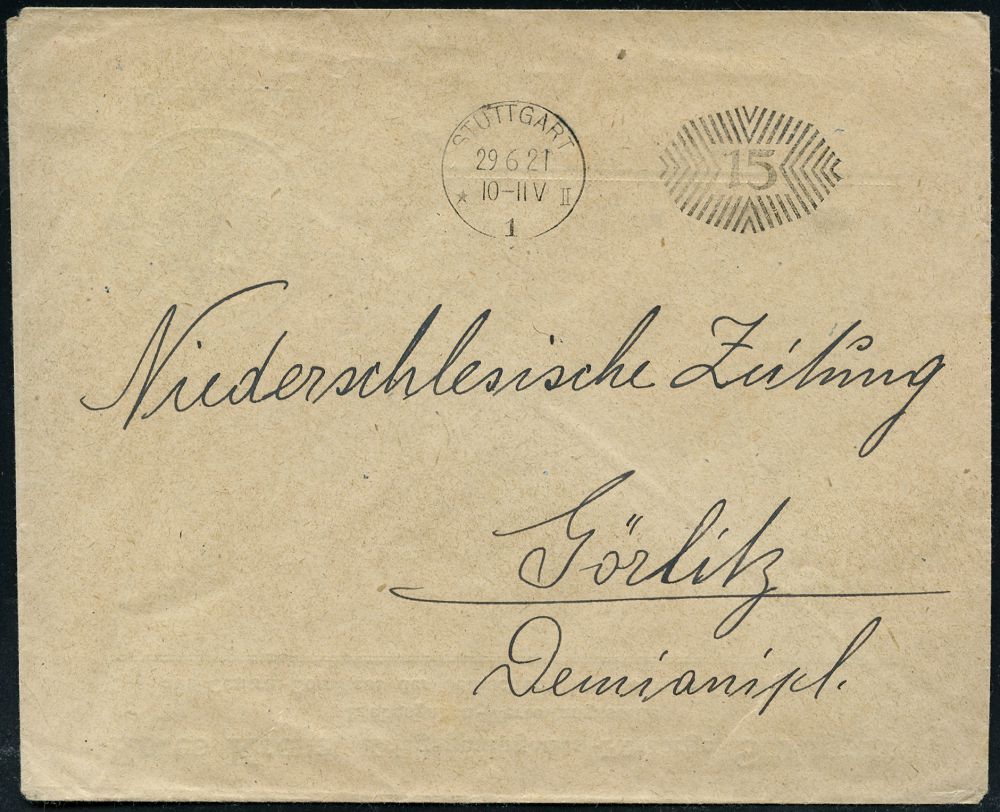 STUTTGART
29 6 21
* 10-11 V II
1
15
Niederschlesische Zeitung
Görlitz
Demianipl.